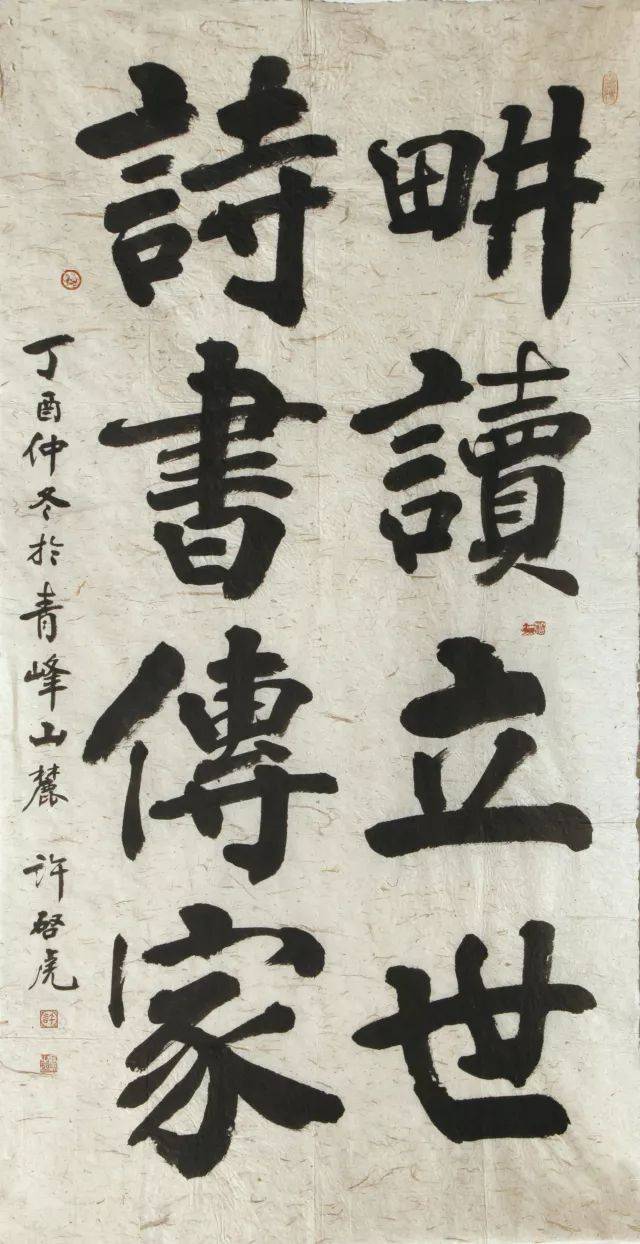 畊讀立世
詩書傳家
丁酉仲冬於青峰山麓 许啓虎